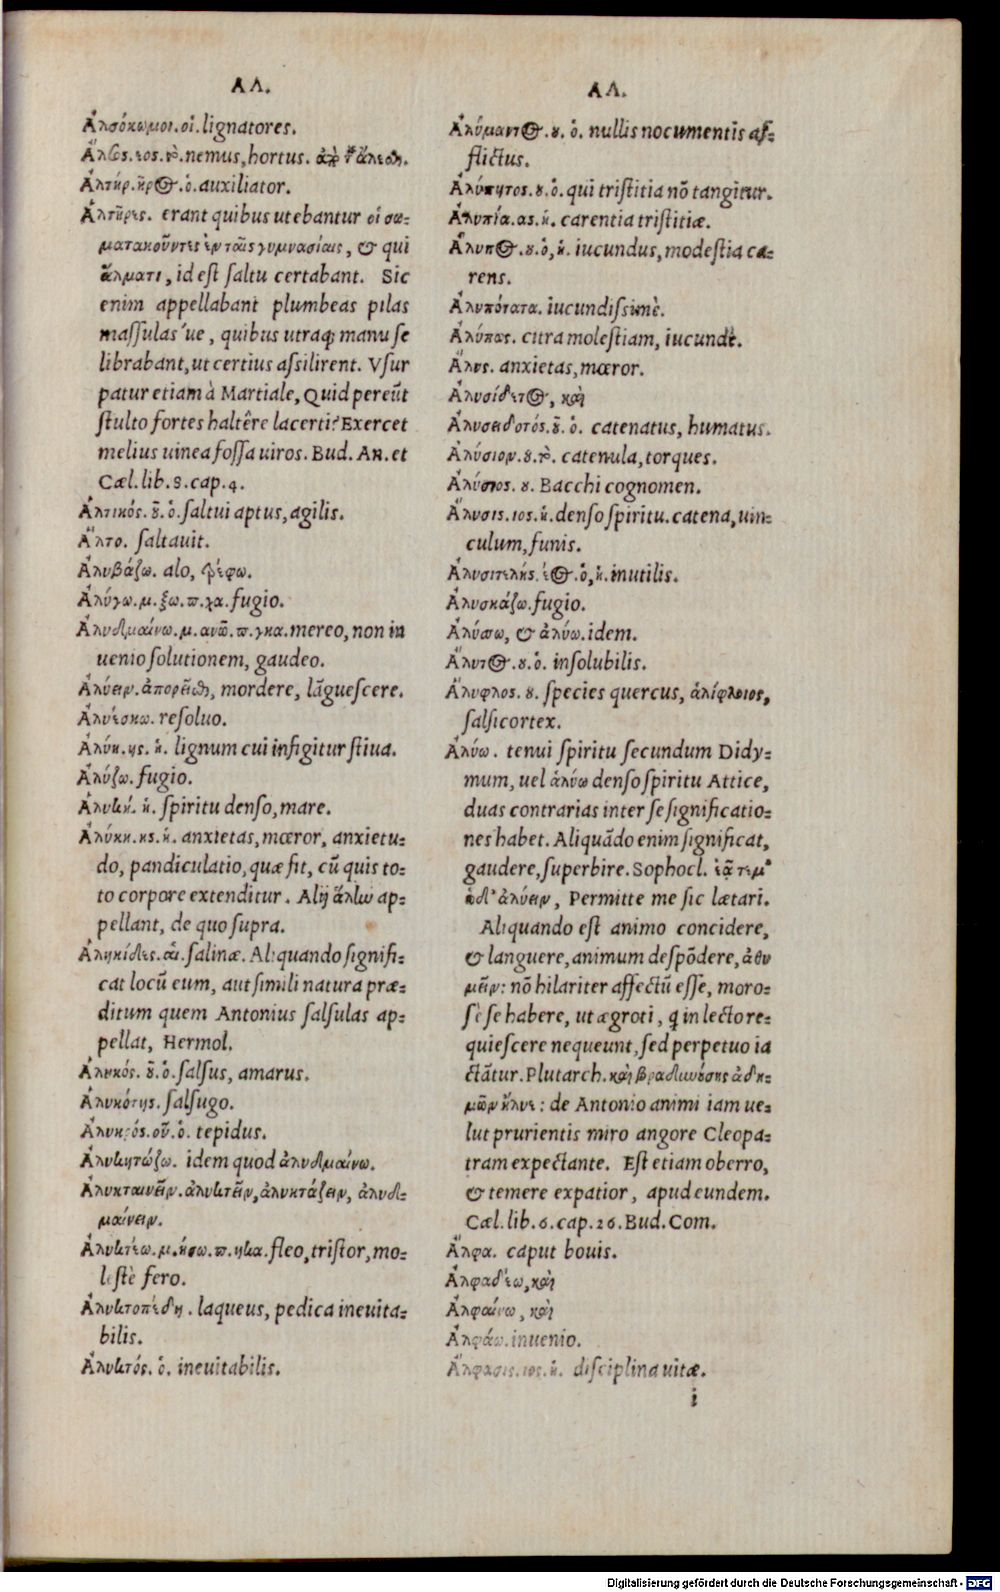 ΑΛ.
Ἀλσόκωμοι.οἱ.lignatores.
Ἄλσος.εος.τὸ.nemus,hortus.
Ἀλτήρ.ῆρος.ὁ.auxiliator.
Ἀλτῆρες. erant quibus utebantur οἱ σω-
ματακοῦντες ἐν ταῖς γυμνασίαις, & qui
ἅλματι, id est saltu certabant. Sic
enim appellabant plumbeas pilas
massulas´ue, quibus utraq; manu se
librabant,ut certius assilirent. Vsur
patur etiam à Martiale, Quid pereũt
stulto fortes haltêre lacerti? Exercet
melius uinea fossa uiros. Bud. An. et
Cæl.lib.8.cap.4.
Ἁλτικός.οῦ.ὁ.saltui aptus,agilis.
Ἄλτο. saltauit.
Ἀλυβάζω. alo, τρέφω.
Ἀλύγω.μ.ξω.π.χα.fugio.
Ἀλυδμαίνω.μ.ανῶ.π.γκα.mereo,non in
uenio solutionem, gaudeo.
Ἀλύειν.ἀπορεῖσθαι, mordere, lãguescere.
Ἀλυέσκω. resoluo.
Ἀλύη.ης.ἡ. lignum cui infigitur stiua.
Ἀλύζω.fugio.
Ἁλυκή.ἡ. spiritu denso,mare.
Ἀλύκη.ης.ἡ. anxietas,mœror, anxietu-
do, pandiculatio,quæ fit, cũ quis to-
to corpore extenditur. Alij ap-
pellant, de quo supra.
Ἁλυκίδες.αἱ.salinæ. Aliquando signifi-
cat locũ eum, aut simili natura præ-
ditum quem Antonius salsulas ap-
pellat, Hermol.
Ἁλυκός.οῦ.ὁ.salsus, amarus.
Ἁλυκότης. salsugo.
Ἀλυκρός.οῦ.ὁ. tepidus.
Ἀλυκτώζω. idem quod ἀλυδμαίνω.
Ἀλυκταινεῖν.ἀλυκτεῖν,ἀλυκτάζειν, ἀλυδ-
μαίνειν.
Ἀλυκτέω.μ.ήσω.π.ηκα.fleo,tristor,mo-
lestè fero.
Ἀλυκτοπέδη. laqueus, pedica ineuita-
bilis.
Ἀλυκτός.ὁ. ineuitabilis.
ΑΛ.
Ἀλύμαντος.ου.ὁ. nullis nocumentis af-
flictus.
Ἀλύπητος.ου.ὁ. qui tristitia nõ tangitur.
Ἀλυπία.ας.ἡ. carentia tristitiæ.
Ἄλυπος.ου.ὁ,ἡ. iucundus, modestia ca-
rens.
Ἀλυπότατα. iucundissimè.
Ἀλύπως. citra molestiam, iucundè.
Ἄλυς. anxietas, mœror.
Ἀλυσίδετος, καὶ
Ἀλυσειδοτός.οῦ.ὁ. catenatus, humatus.
Ἀλύσιον.ου.τὸ. catenula,torques.
Ἀλύσιος.ου. Bacchi cognomen.
Ἄλυσις.ιος.ἡ.denso spiritu.catena,uin-
culum,funis.
Ἀλυσιτελής.έος.ὁ,ἡ.inutilis.
Ἀλυσκάζω.fugio.
Ἀλύσσω, & ἀλύω.idem.
Ἄλυτος.ου.ὁ. insolubilis.
Ἄλυφλος.ου. species quercus, ἁλίφλοιος,
salsicortex.
Ἀλύω. tenui spiritu secundum Didy-
mum, uel ἁλύω denso spiritu Attice,
duas contrarias inter se significatio-
nes habet. Aliquãdo enim significat,
gaudere,superbire.Sophocl. ἐᾷ τεμ᾽
ὧδ᾽ ἀλύειν, Permitte me sic lætari.
Aliquando est animo concidere,
& languere,animum despõdere,ἀθυ
μεῖν: nõ hilariter affectũ esse, moro-
sè se habere, ut ægroti, q̃ in lecto re-
quiescere nequeunt,sed perpetuo ia
ctãtur.Plutarch.καὶ βραδυνούσης ἀδη-
μῶν ἤλυε: de Antonio animi iam ue-
lut prurientis miro angore Cleopa-
tram expectante. Est etiam oberro,
& temere expatior, apud eundem.
Cæl.lib.6.cap.26.Bud.Com.
Ἄλφα. caput bouis.
Ἀλφαδέω,καὶ
Ἀλφαίνω, καὶ
Ἀλφάω.inuenio.
Ἄλφασις.ιος.ἡ. disciplina uitæ.
i
Digitalisierung gefördert durch die Deutsche Forschungsgemeinschaft - DFG